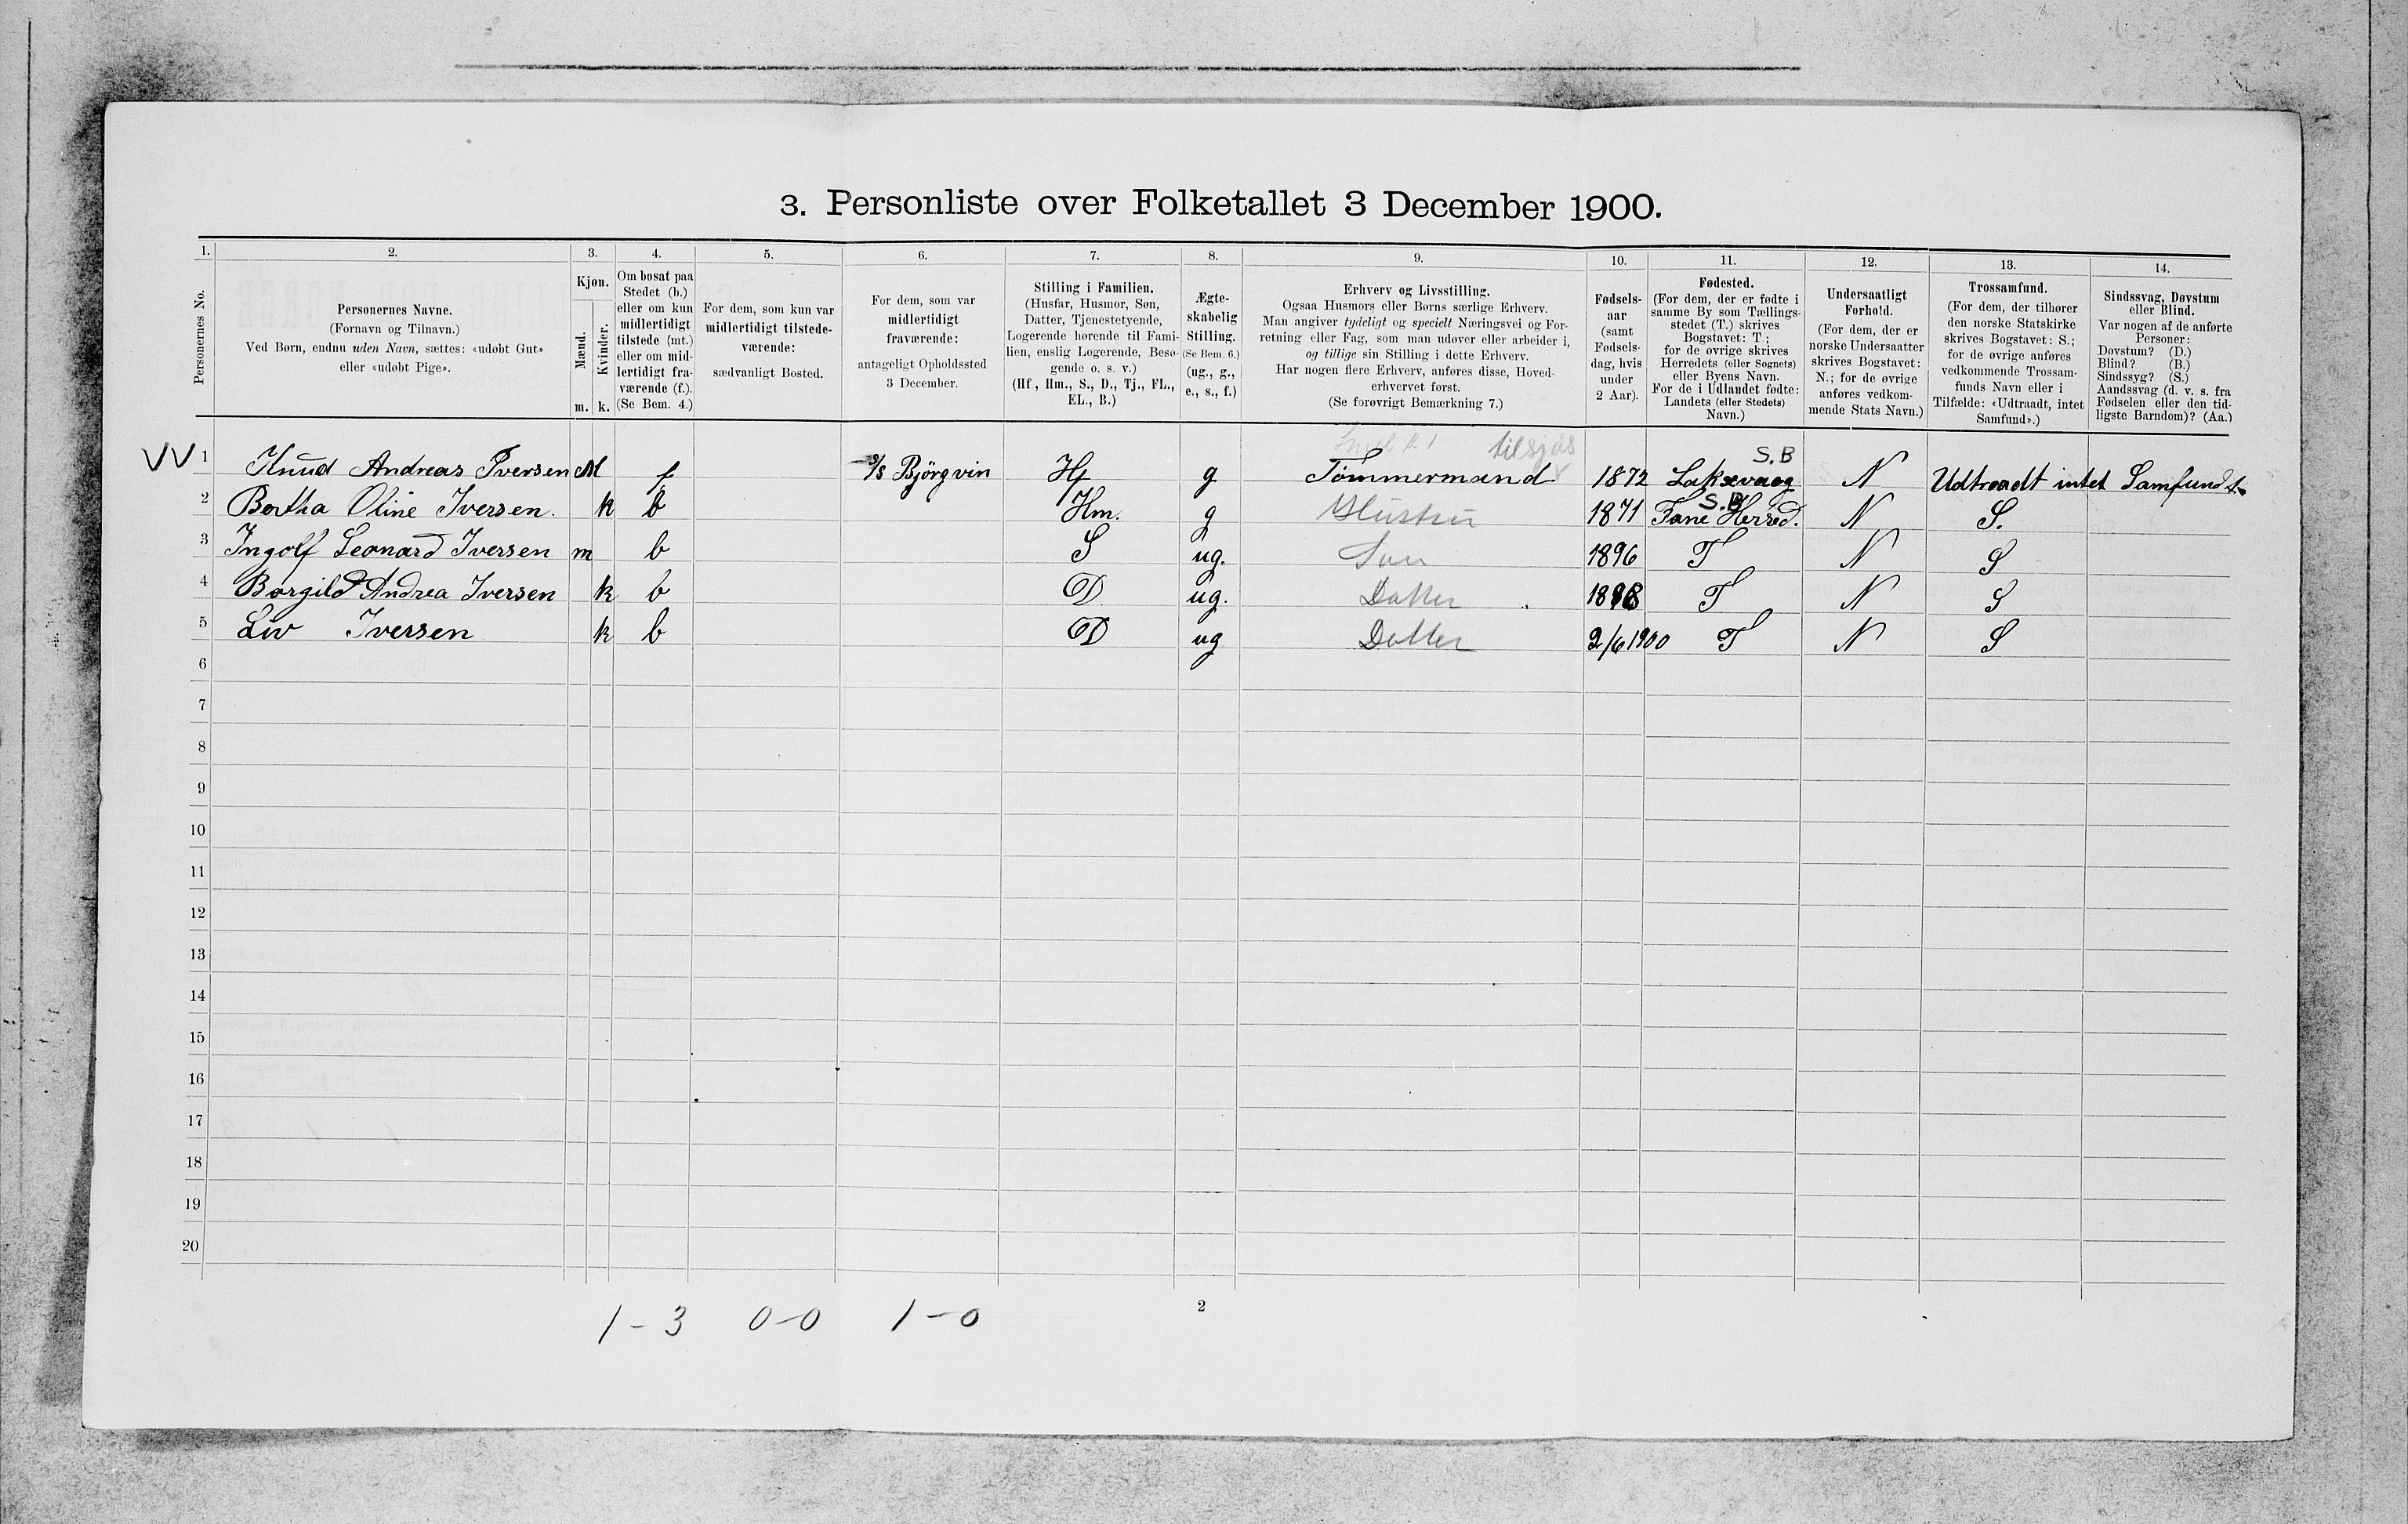 3. Personliste over Folketallet 3 December 1900.
1. 2. 3. 4. 5. 6. 7. 8. 9. 10. 11. 12. 13. 14.
Personernes No.
Personernes Navne.
(Fornavn og Tilnavn.)
Ved Børn, endnu uden Navn, sættes: «udøbt Gut»
eller «udøbt Pige».
Kjøn.
Mænd.
Kvinder.
m. k.
Om bosat paa
Stedet (b.)
eller om kun
midlertidigt
tilstede (mt.)
eller om mid-
lertidigt fra-
værende (f.).
(Se Bem. 4.)
For dem, som kun var
midlertidigt tilstede-
værende:
sædvanligt Bosted.
For dem, som var
midlertidigt
fraværende:
antageligt Opholdssted
3 December.
Stilling i Familien.
(Husfar, Husmor, Søn,
Datter, Tjenestetyende,
Logerende hørende til Fami-
lien, enslig Logerende, Besø-
gende o. s. v.)
(Hf., Hm., S., D., Tj., FL.,
EL., B.)
Ægte-
skabelig
Stilling.
(Se Bem. 6.)
(ug., g.,
e., s., f.)
Erhverv og Livsstilling.
Ogsaa Husmors eller Børns særlige Erhverv.
Man angiver tydeligt og specielt Næringsvei og For-
retning eller Fag, som man udøver eller arbeider i,
og tillige sin Stilling i dette Erhverv.
Har nogen flere Erhverv, anføres disse, Hoved-
erhvervet først.
(Se forøvrigt Bemærkning 7.)
Fødsels-
aar
(samt
Fødsels-
dag, hvis
under
2 Aar).
Fødested.
(For dem, der er fødte i
samme By som Tællings-
stedet (T.) skrives
Bogstavet: T;
for de øvrige skrives
Herredets (eller Sognets)
eller Byens Navn.
For de i Udlandet fødte:
Landets (eller Stedets)
Navn.)
Undersaatligt
Forhold.
(For dem, der er
norske Undersaatter
skrives Bogstavet:
N.; for de øvrige
anføres vedkom-
mende Stats Navn.)
Trossamfund.
(For dem, der tilhører
den norske Statskirke
skrives Bogstavet: S.;
for de øvrige anføres
vedkommende Trossam-
funds Navn eller i
Tilfælde: «Udtraadt, intet
Samfund».)
Sindssvag, Døvstum
eller Blind.
Var nogen af de anførte
Personer:
Døvstum? (D.)
Blind? (B.)
Sindssyg? (S.)
Aandssvag (d. v. s. fra
Fødselen eller den tid-
ligste Barndom)? (Aa.)
tilsjøs S.B
VV 1 Knud Andreas Iversen M f S/s Björgvin Hf g Tømmermand 1872 Laksevaag N Udtraadt intet Samfund
S.B
2 Bertha Oline Iversen. k b Hm. g Hustru 1871 Fane Herred. N S.
3 Ingolf Leonard Iversen m b S ug. Søn 1896 T N S
4 Borgild Andrea Iversen k b D ug. Datter 1898 T N S
5 Liv Iversen k b D ug Datter 2/6 1900 T N S
6
7
8
9
10
11
12
13
14
15
16
17
18
19
20
1-3 0-0 1-0 2